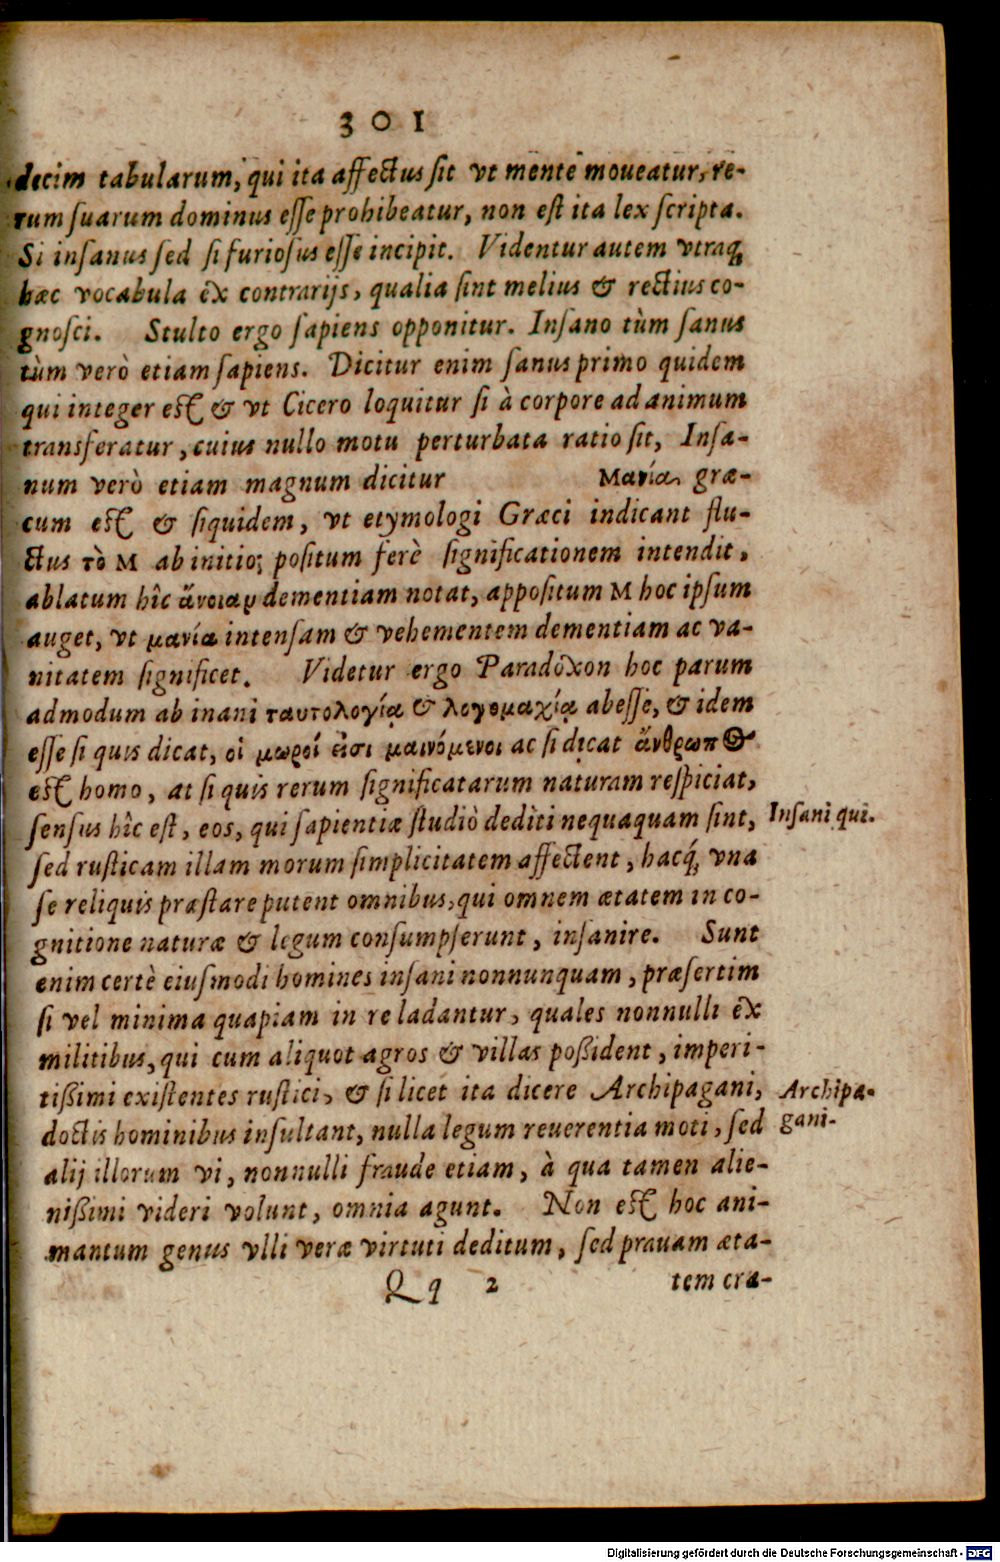 301
decim tabularum, qui ita affectus sit vt mente moueatur, re-
rum suarum dominus esse prohibeatur, non est ita lex scripta.
Si insanus sed si furiosus esse incipit. Videntur autem vtraq;
hæc vocabula èx contrarijs, qualia sint melius & rectius co-
gnosci. Stulto ergo sapiens opponitur. Insano tùm sanus
tùm verò etiam sapiens. Dicitur enim sanus primo quidem
qui integer est & vt Cicero loquitur si à corpore ad animum
transferatur, cuius nullo motu perturbata ratio sit, Insa-
num verò etiam magnum dicitur Μανία græ-
cum est & siquidem, vt etymologi Græci indicant flu-
ctus τὸ Μ ab initio; positum ferè significationem intendit,
ablatum hîc ἄνοιαν dementiam notat, appositum Μ hoc ipsum
auget, vt μανία intensam & vehementem dementiam ac va-
nitatem significet. Videtur ergo Paradoxon hoc parum
admodum ab inani ταυτολογίᾳ & λογομαχίᾳ abesse, & idem
esse si quis dicat, οἱ μωροί εἰσι μαινόμενοι ac si dicat ἄνθρωπος
est homo, at si quis rerum significatarum naturam respiciat,
sensus hîc est, eos, qui sapientiæ studiò dediti nequaquam sint,
Insani qui.
sed rusticam illam morum simplicitatem affectent, hacq́; vna
se reliquis præstare putent omnibus, qui omnem ætatem in co-
gnitione naturæ & legum consumpserunt, insanire. Sunt
enim certè eiusmodi homines insani nonnunquam, præsertim
si vel minima quapiam in re ladantur, quales nonnulli èx
militibus, qui cum aliquot agros & villas possident, imperi-
tissimi existentes rustici, & si licet ita dicere Archipagani,
Archipa-
gani-
doctis hominibus insultant, nulla legum reuerentia moti, sed
alij illorum vi, nonnulli fraude etiam, à qua tamen alie-
nissimi videri volunt, omnia agunt. Non est hoc ani-
mantum genus vlli veræ virtuti deditum, sed prauam æta-
Qq 2 tem cra-
Digitalisierung gefördert durch die Deutsche Forschungsgemeinschaft - DFG